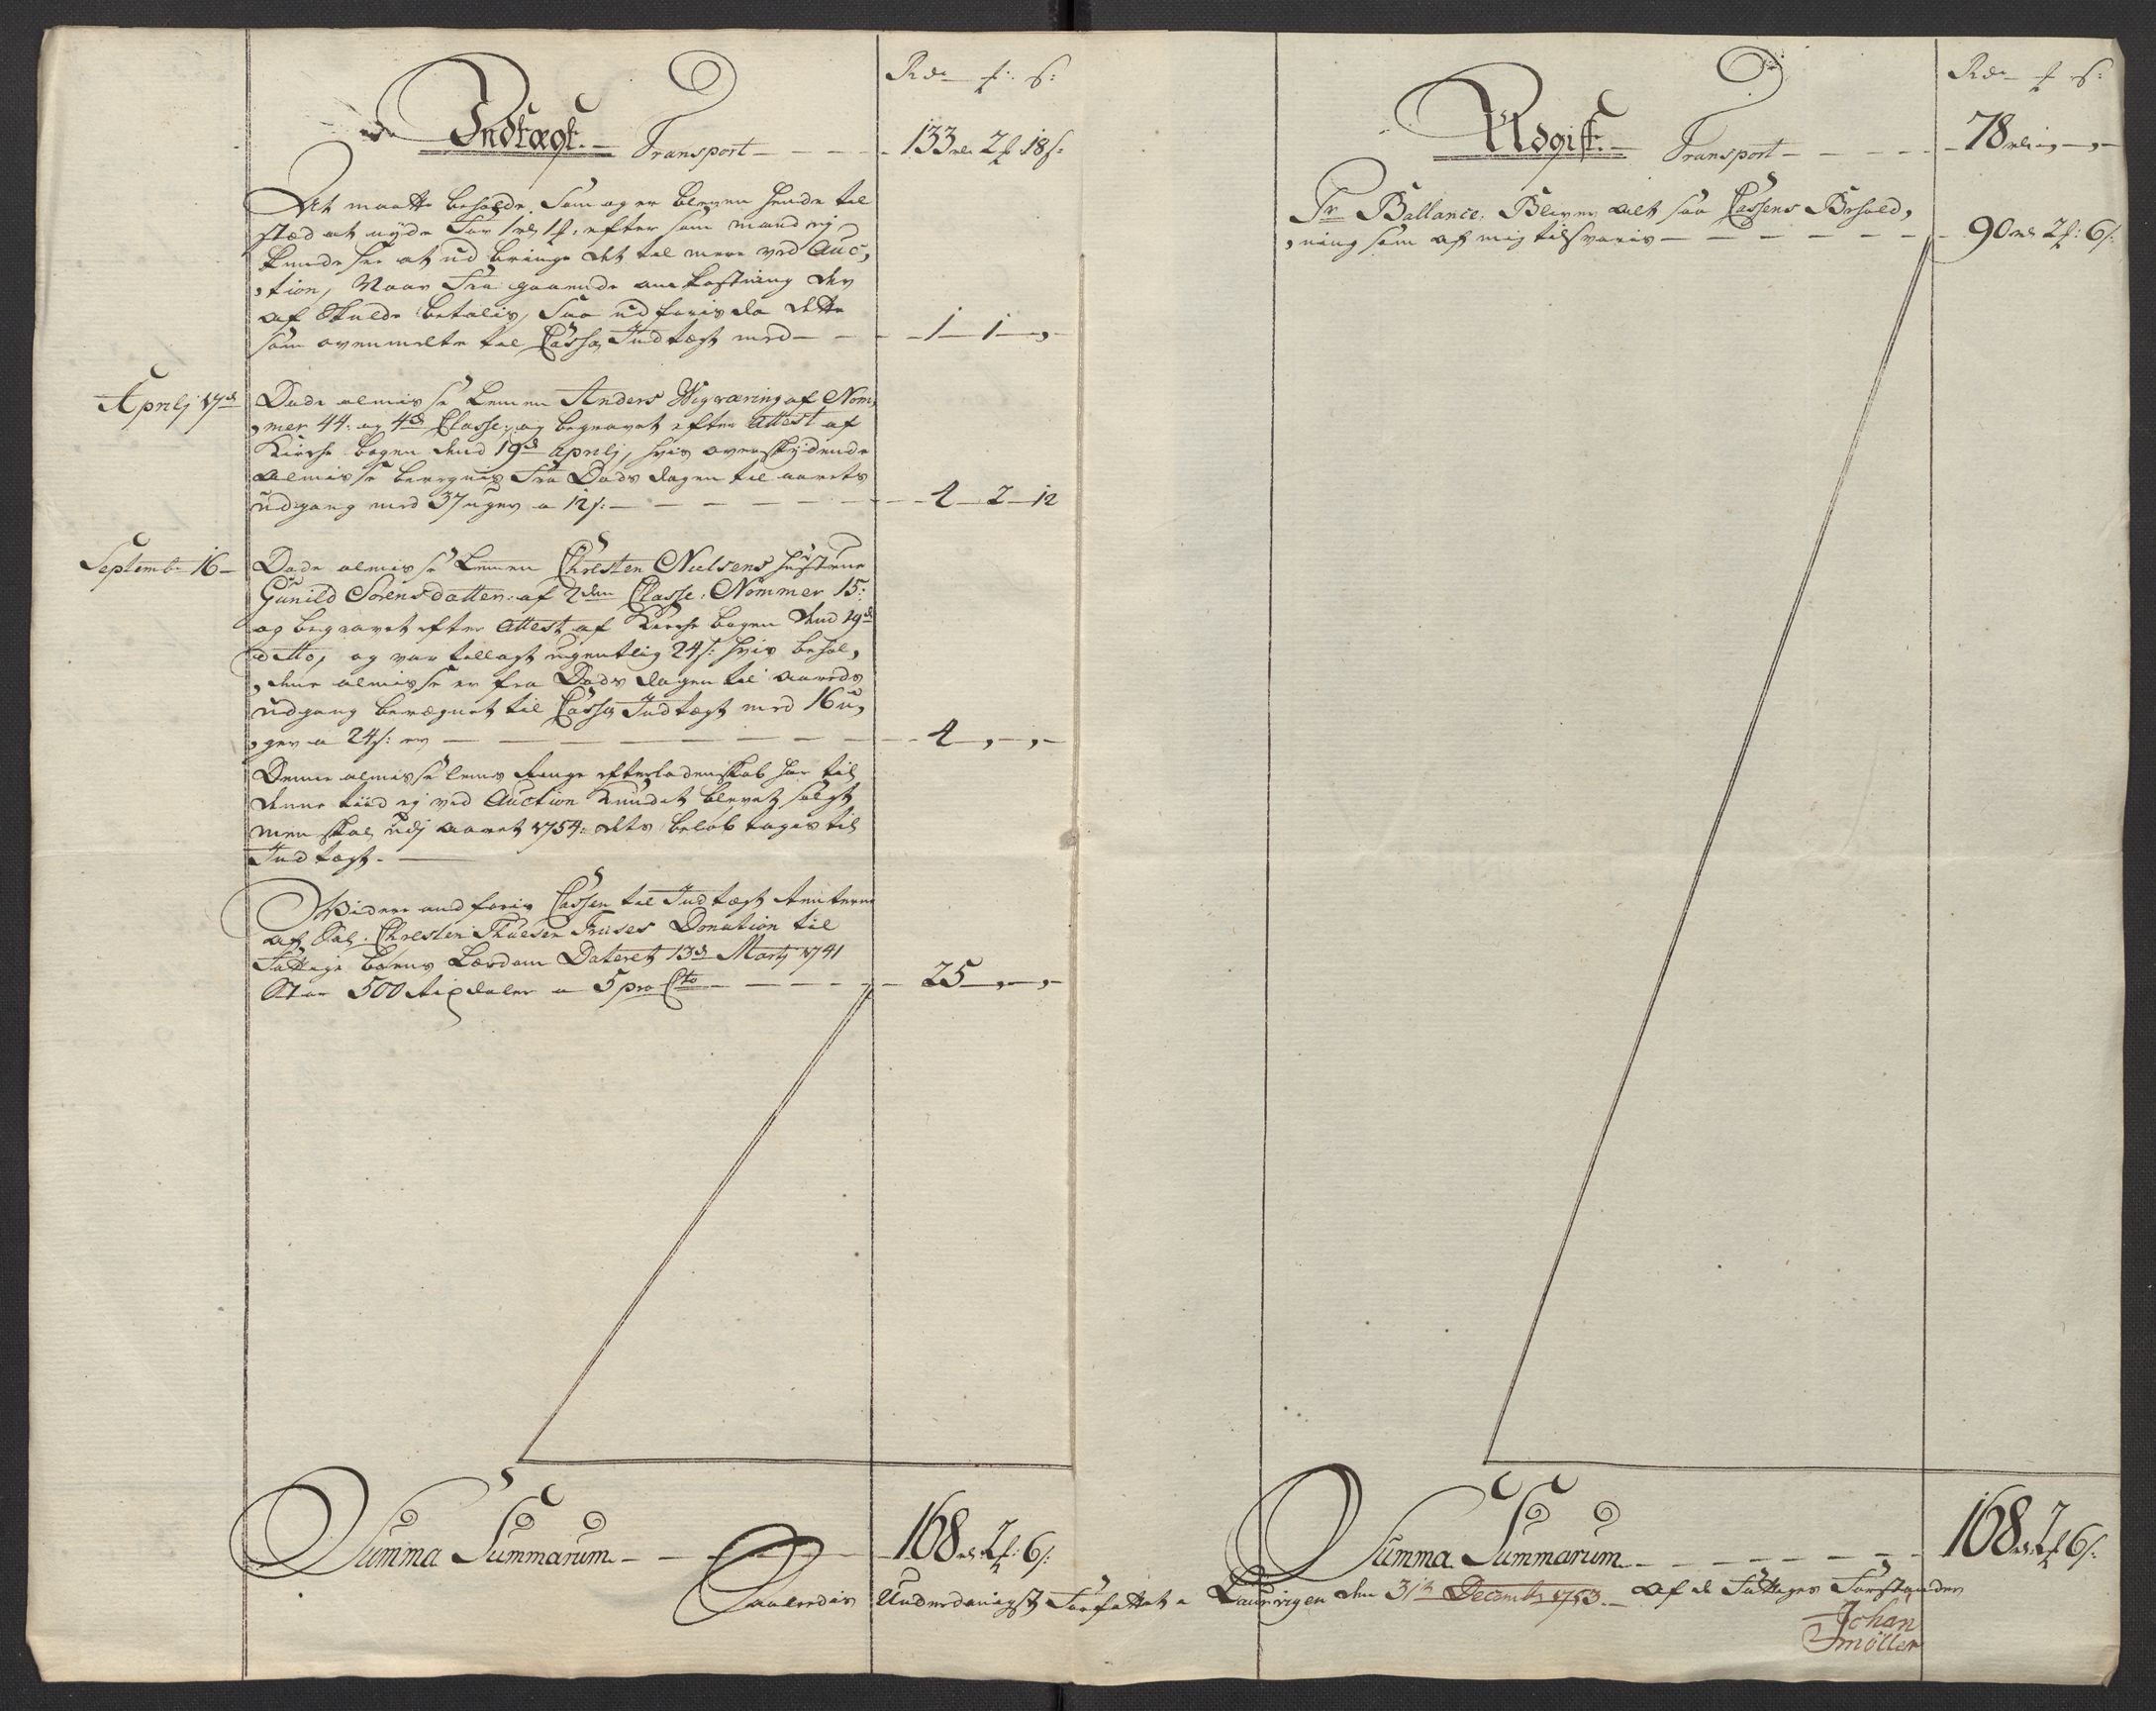 Rdr f: s:
Indtægt.— Transport — — — 133 rd 2 f 18 s:
At maatte beholde, Som og er bleven hende til
stæd at nyde For 1 rd 1 f. efter som mand ej
kunde see at ud bringe det til mere ved Auc,
,tion, Naar Fra gaaende omkostning der
af Skulde betalis, Saa udføris da dette
som ovenmelte til Cassa Indtægt med — — 1 — 1 — , —
Aprilj 17d
Døde almisse Lemen Anders Wigværing af Nom,
,mer 44: og 4d Classe, og begravet efter Attest af
Kirche bogen dend 19d Aprilj, hvis overskydende
Almisse beregnis Fra Døds dagen til aarets
udgang med 37 uger a 12 s: — — — — — 4 — 2 — 12
Septembr 16 —
Døde almisse Lemen Christen Nielsens hustrue
Gunild Sørensdatter: af 2den Classe: Nommer 15:
og begravet efter Attest af Kirche bogen dend 19d
ditto, og var tillagt ugentlig 24 s: hvis behol,
,dene almisse er fra Døds dagen til aareds
udgang beregnet til Cassa Indtægt med 16 u,
,ger a 24 s: er — — — — — — 4 — , — , —
Denne almisse lems Ringe efterladenskab har til
denne tiid ej ved Auction kundet blevet solgt
men skal udj aaret 1754: dets beløb tages til
Indtægt. —
Widere andføris Cassen til Indtægt Renterne
af Sal: Christen Thuesen Friises Donation til
Fattige børns Lærdom Dateret 13d Martj 1741
Stor 500 Rixdaler a 5 pro Cto — — — — 25 — , — , —
Summa Summarum — — — — 168 rd 2 f: 6 s:
Rdr f s:
Udgift.— Transport — — — — 78 rd — , — , —
Pr Ballance. Bliver alt saa Cassens Behold,
,ning som af mig tilsvaris — — — — — — 90 rd 2 f: 6 s:
Summa Summarum — — — — — — 168 rd 2 f 6 s:
Saaledis Underdanigst Forfattet a Laurvigen den 31te Decembr 1753.— af de Fattiges Forstander
Johan
Møller